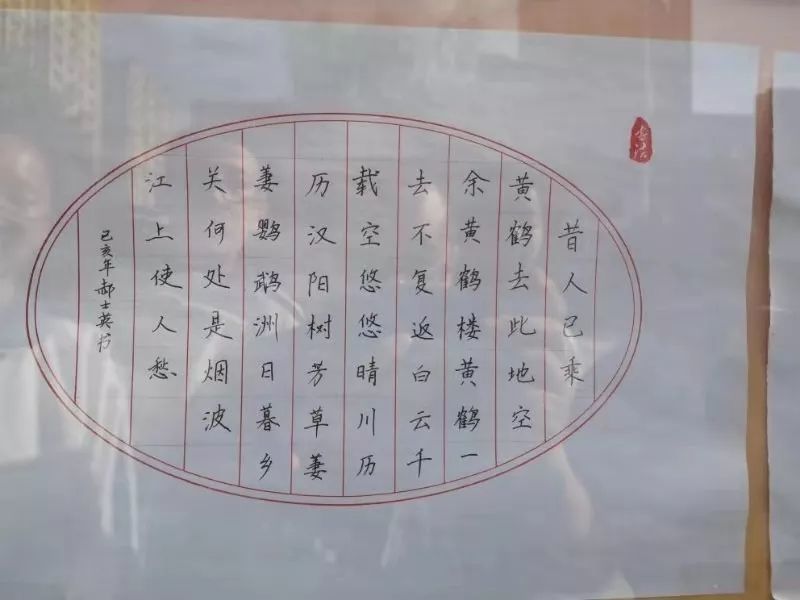 书法
昔人已乘
黄鹤去此地空
余黄鹤楼黄鹤一
去不复返白云千
载空悠悠晴川历
历汉阳树芳草萋
萋鹦鹉洲日暮乡
关何处是烟波
江上使人愁
己亥年郝士英书